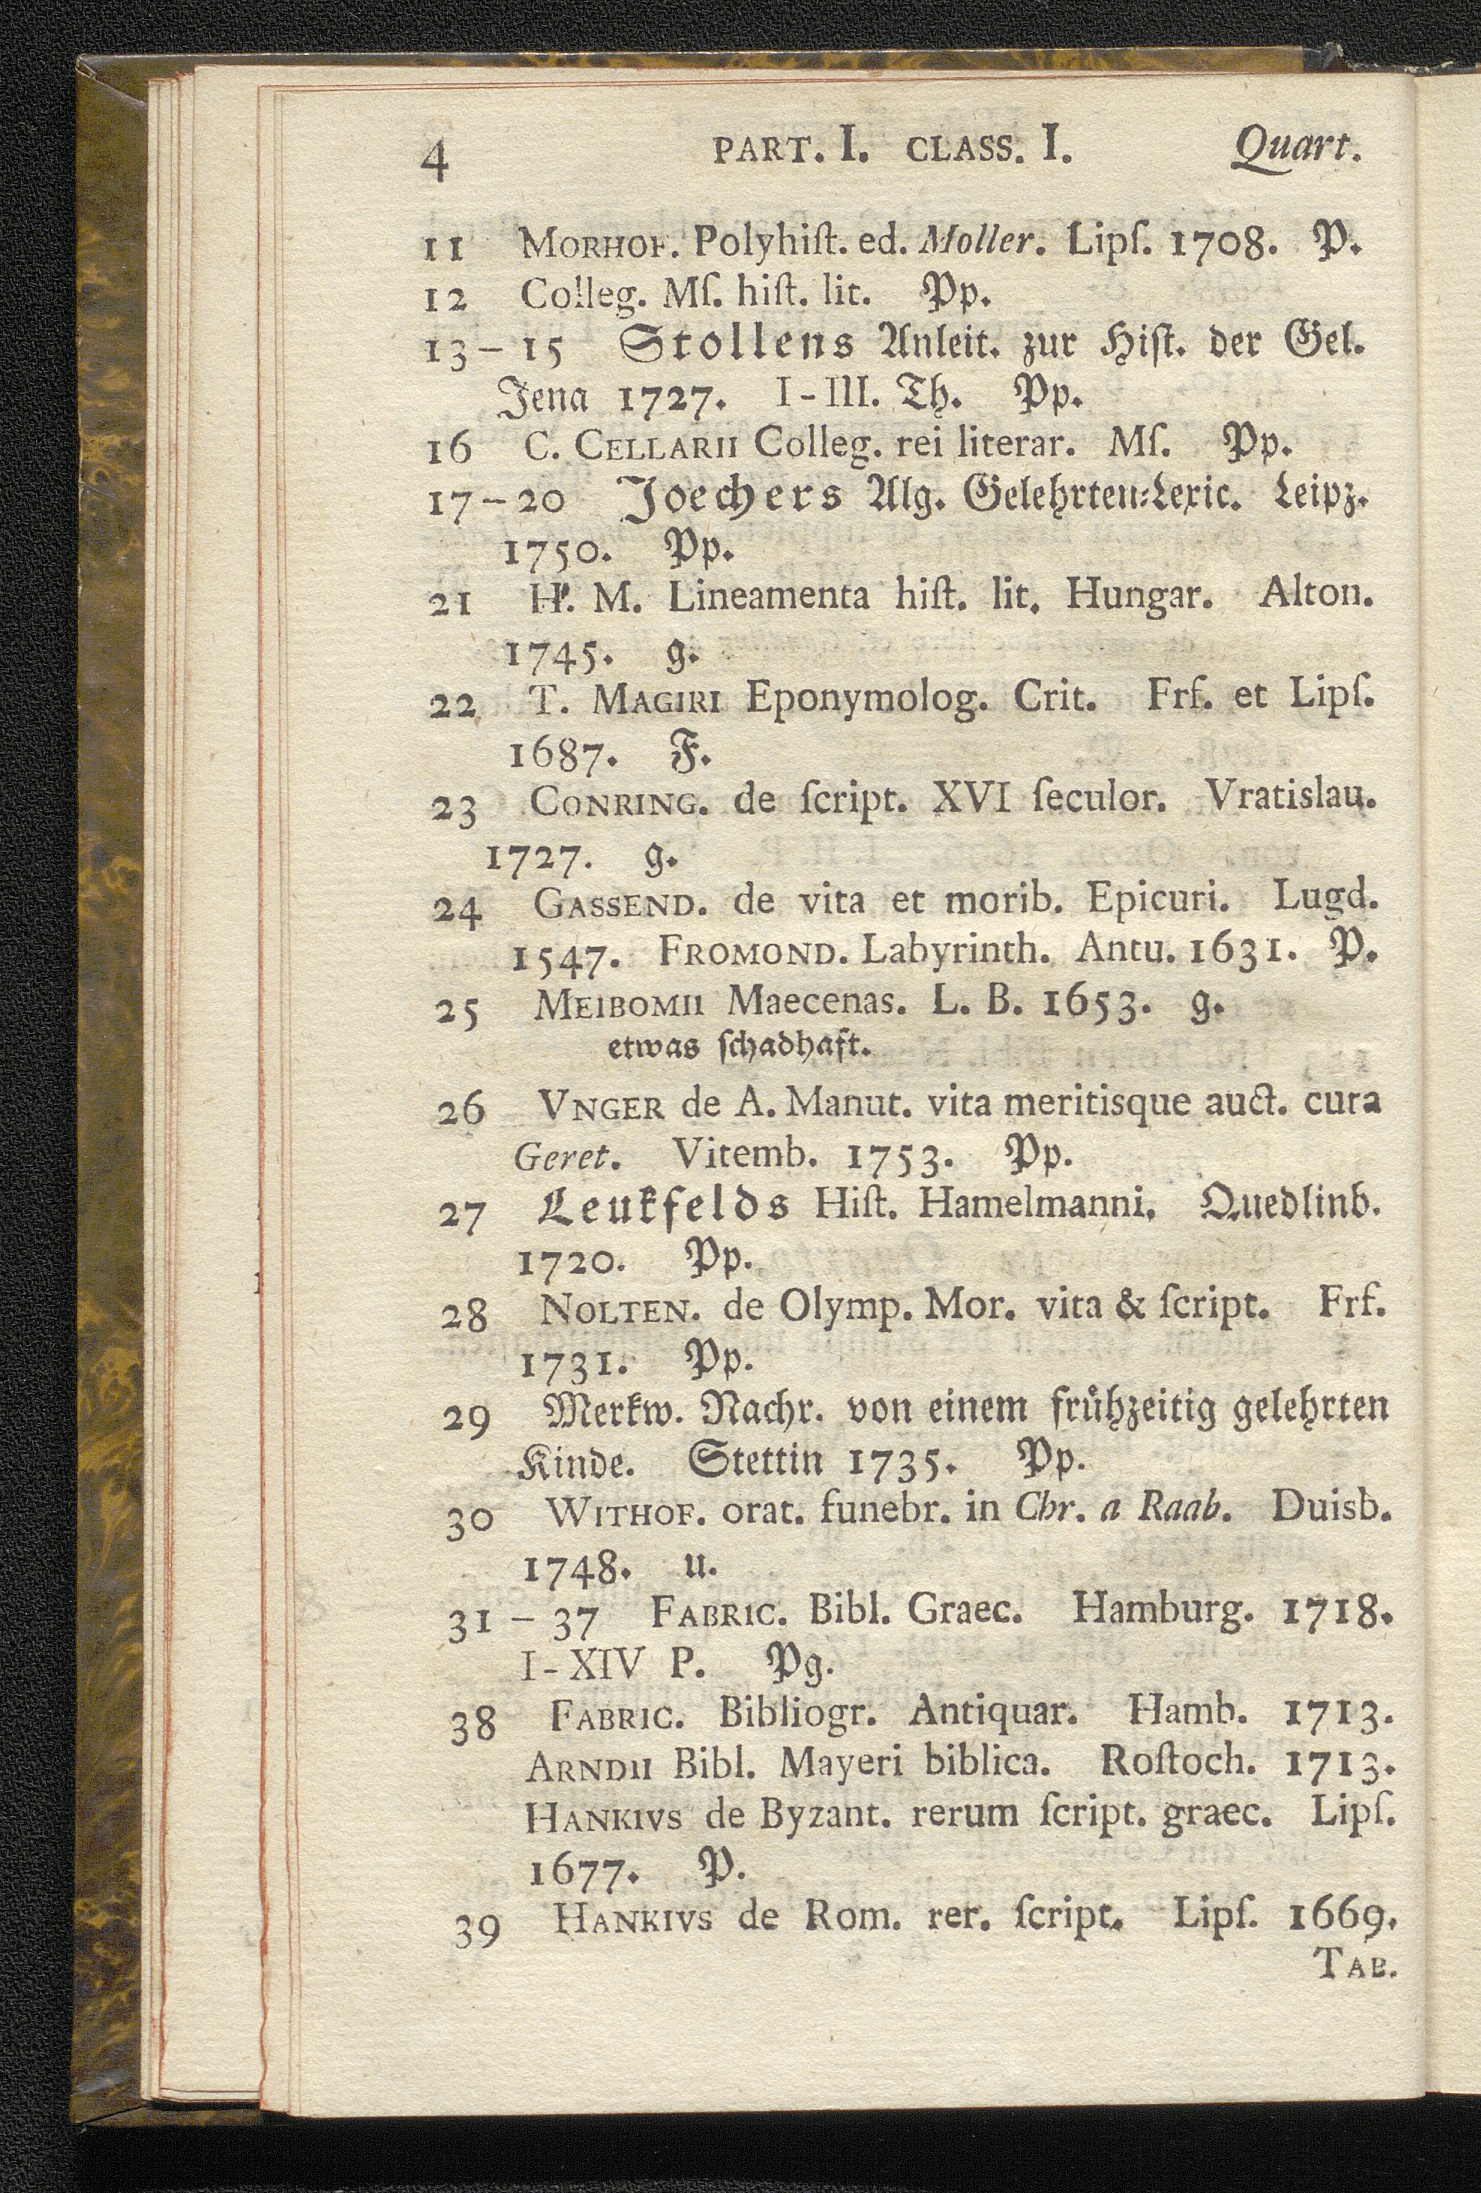 4 PART. I. CLASS. I. Quart.
11 MORHOF. Polyhiſt. ed. Moller. Lipſ. 1708. P.
12 Colleg. Mſ. hiſt. lit. Pp.
13 – 15 Stollens Anleit. zur Hiſt. der Gel.
Jena 1727. I - III. Th. Pp.
16 C. CELLARII Colleg. rei literar. Mſ. Pp.
17 – 20 Joechers Alg. Gelehrten⸗Lexic. Leipz.
1750. Pp.
21 H. M. Lineamenta hiſt. lit. Hungar. Alton.
1745. g.
22 T. MAGIRI Eponymolog. Crit. Frf. et Lipſ.
1687. F.
23 CONRING. de ſcript. XVI ſeculor. Vratislau.
1727. g.
24 GASSEND. de vita et morib. Epicuri. Lugd.
1547. FROMOND. Labyrinth. Antu. 1631. P.
25 MEIBOMII Maecenas. L. B. 1653. g.
etwas ſchadhaft.
26 VNGER de A. Manut. vita meritisque auct. cura
Geret. Vitemb. 1753. Pp.
27 Leukfelds Hiſt. Hamelmanni. Quedlinb.
1720. Pp.
28 NOLTEN. de Olymp. Mor. vita & ſcript. Frf.
1731. Pp.
29 Merkw. Nachr. von einem fruͤhzeitig gelehrten
Kinde. Stettin 1735. Pp.
30 WITHOF. orat. funebr. in Chr. a Raab. Duisb.
1748. u.
31 – 37 FABRIC. Bibl. Graec. Hamburg. 1718.
I - XIV P. Pg.
38 FABRIC. Bibliogr. Antiquar. Hamb. 1713.
ARNDII Bibl. Mayeri biblica. Roſtoch. 1713.
HANKIVS de Byzant. rerum ſcript. graec. Lipſ.
1677. P.
39 HANKIVS de Rom. rer. ſcript. Lipſ. 1669.
TAB.